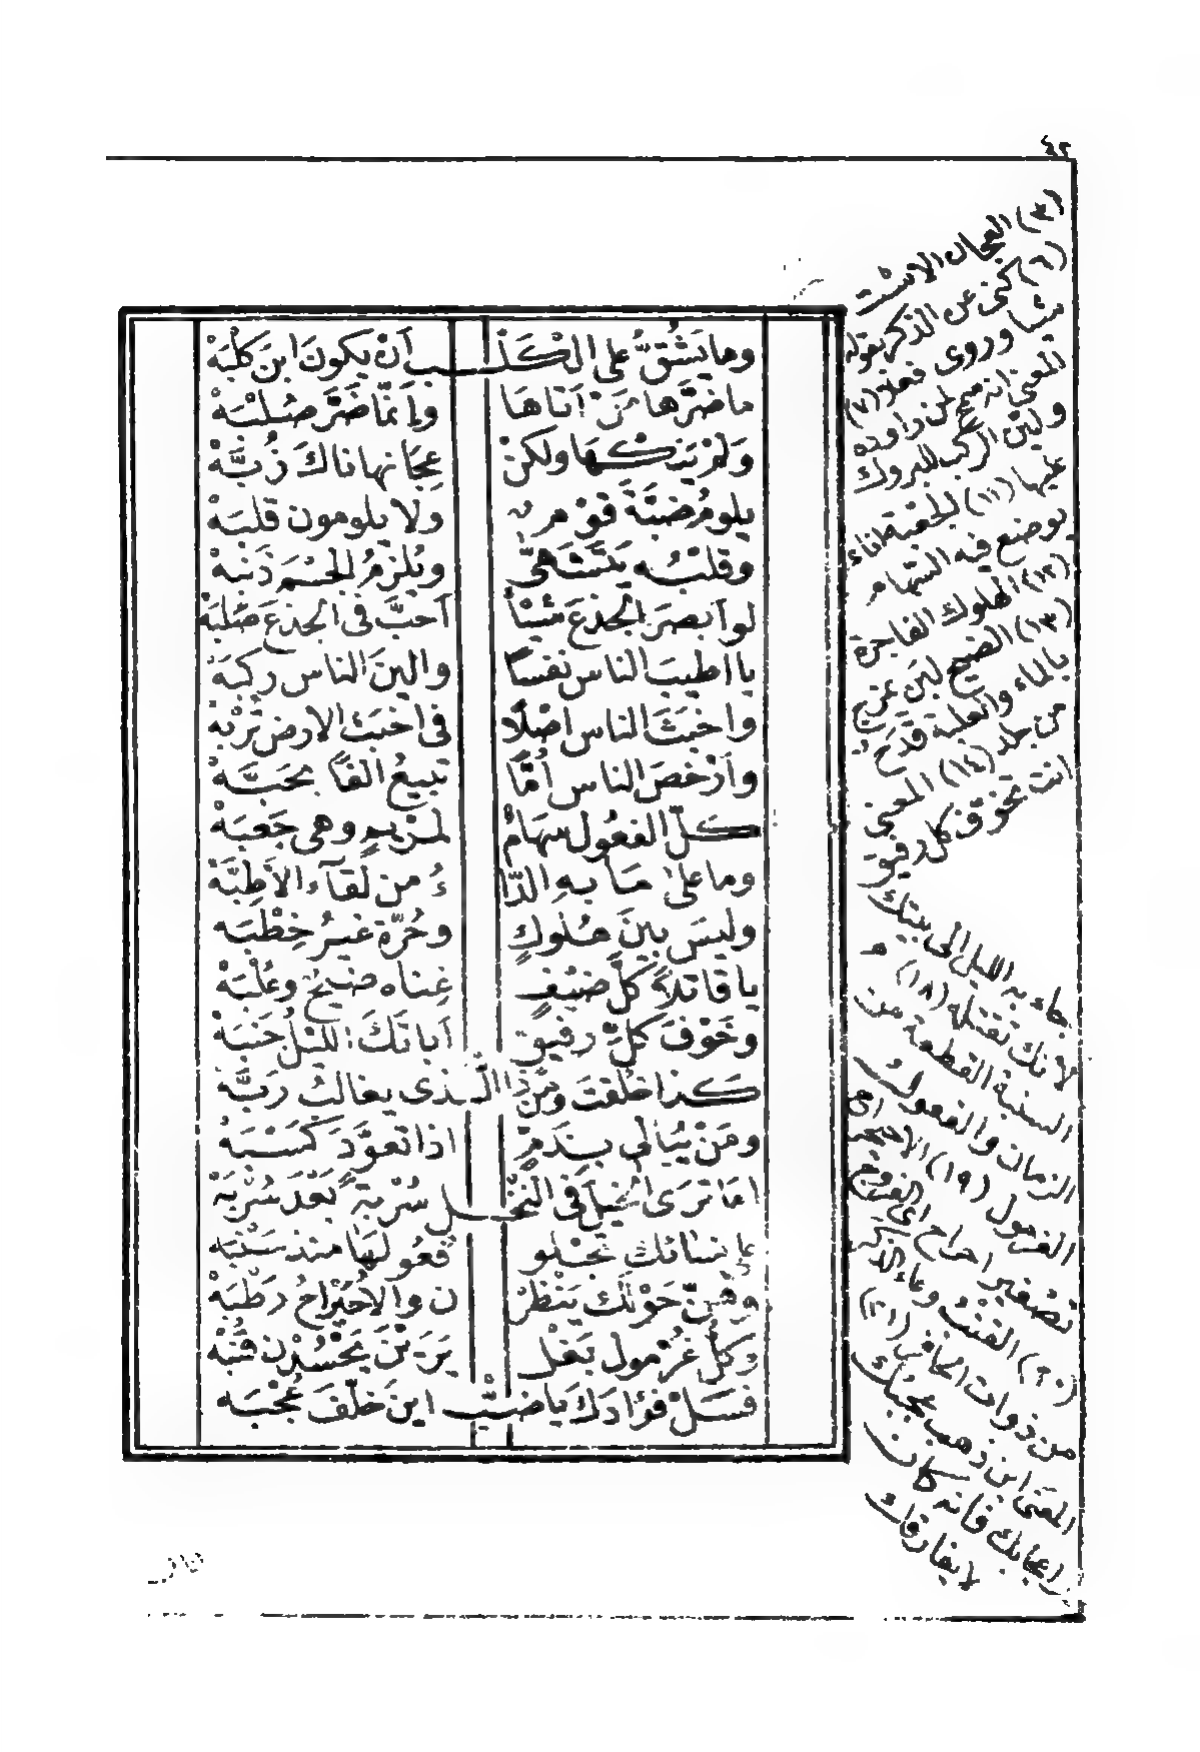 ٤٢
وما يَشُقُّ على الكَلْب أنْ يكونَ ابنَ كلْبَهْ
ما ضَرَّها مَنْ أتاها وإنمّا ضَرَّ صُلْبَهْ
وَلمْ يَنِكْها ولكنْ عِجَانها ناكَ زُبَّهْ
يلومُ ضبَّةَ قوْمٌ ولا يلومون قلبَهْ
وقلبُه يَتَشَهّى ويُلزِمُ الجسْمَ ذَنْبهْ
لو أبصَرَ الجِذعَ شيْئاً أحَبَّ في الجذعِ صَلْبَهْ
يا اطيبَ الناس نفساً والينَ الناس ركبَهْ
واخبَثَ الناس اصْلًا في اخبَث الارض تُرْبهْ
وأرْخصَ الناس أُمّاً تبيعُ الفاً بحَبَّهْ
كلّ الفعُول سهَامٌ لمرْيمٍ وهي جَعبَهْ
وما على مَا بهِ الدّا ءُ من لقآءِ الأطِبَّهْ
وليسَ بينَ هَلوكٍ وحُرّة غيرُ خِطْبَه
يا قاتلاً كلَّ ضيْفٍ غِناه ضيحٌ وعُلْبَهْ
وخَوْفَ كلِّ رفيقٍ أباتَكَ الليْلُ جَنبَهْ
كذا خلقتَ ومَنْ ذا الّذى يغالبُ رَبَّهْ
ومَنْ يُبَالى بِذَمٍّ اذا تعوَّدَ كَسْبَهُ
اما تَرَى الخيلَ فى النَّخل سُرْبة بَعْدَ سُرْبَهْ
على نسائك تجْلو فعُولَها منذ سَنْبَه
وهُنّ حَوْلَكَ يَنْظرْ ن والأُحَيْرَاحُ رَطْبَهْ
وكلّ غُرْمول بَغْل يَرَيْنَ يَحْسُدْن قنبَهْ
فسَلْ فؤادكَ يا ضبّ اينَ خلّفَ عُجْبَه
كنى عن الذكر بقوله
وروى فعلا (٧)
ولين الركب للبروك
عليها (١١) الجعبة اناء
يوضع فيه السهام
(١٢) الهلوك الفاجرة
(١٣) الضيح لبن مزج
بالماء والعلبة قدح
من جلد (١٤) المعنى
انت تخوّف كل رفيق
جاء به الليل الى بيتك
لانك تقتله (١٨)
السنبة القطعة من
الزمان والفعول
الغرمول (١٩) الاحيراح
تصغير احراح اى الفروج
(٢٠) القنب وعاء الذكر
من ذوات الحافر (٢١)
المعنى اين ذهب عجبك
اعجابك فانه كان
لا يفارقك